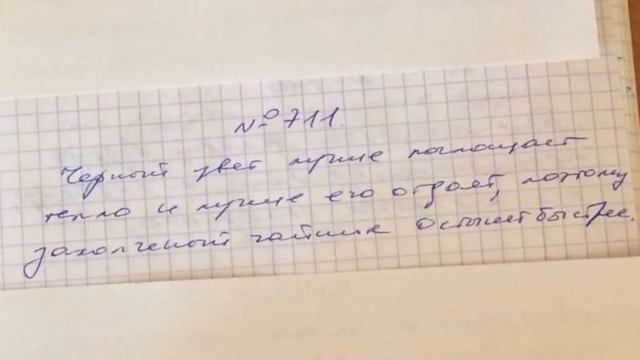 № 711.
Черный цвет лучше поглощает
тепло и лучше его отдает, поэтому
закопченый чайник остынет быстрее.